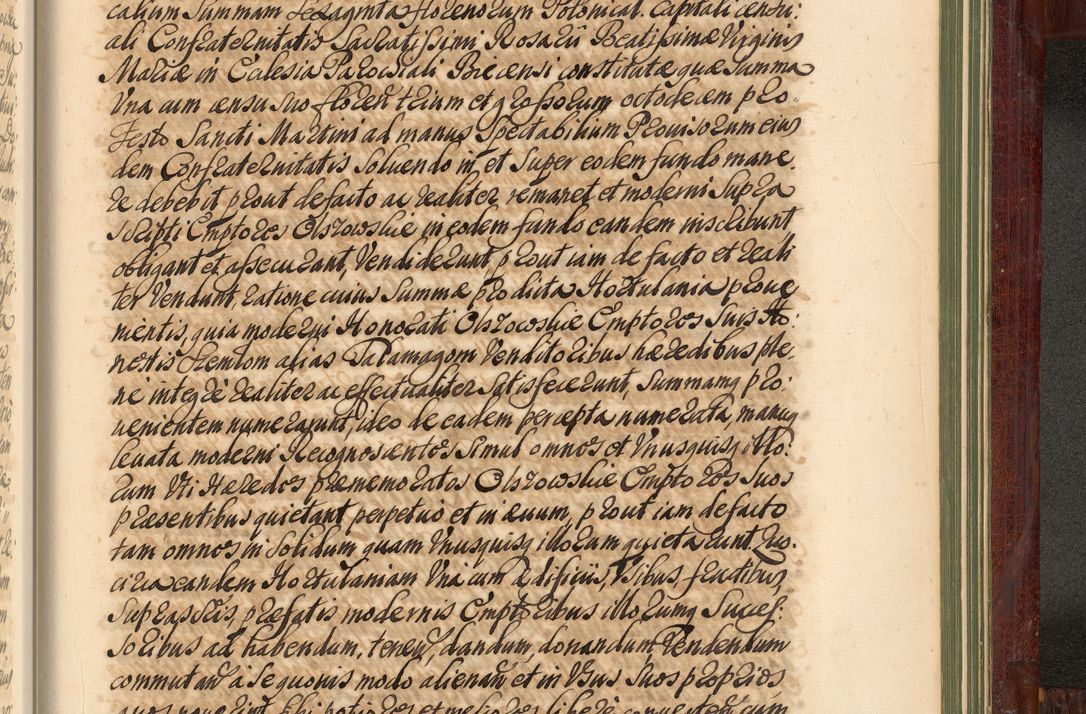 calium Summam Sexaginta florenorum Polonical. Capitali censu:
ali Confraternitatis Sacratissimi Rosarii Beatissimæ Virginis
Mariæ in Eclesia Parochiali Biecensi constitutæ quæ Summa
Una cum censu suo floren trium et grossorum octodecem pro
Festo Sancti Martini ad manus Spectabilium Provisorum eius
dem Confraternitatis Solvendo in et Super eodem fundo mane
re debebit prout defacto ac realiter remanet et moderni Supra
Scripti Emptores Olszowskie in eodem fundo eandem inscribunt
obligant et assecurant, Vendiderunt prout iam de facto et reali
ter Vendunt, ratione cuius Summæ prodicta Hortulania prove
nientis, quia moderni Honorati Olszowskie Emptores Suis Ho:
nestis Jemiom alias Palamagom Venditoribus hæredibus ple,
ne integre realiter ac effectualiter Satisfecerunt, Summamq pro:
venientem numerarunt, ideo de eadem percepta numerata, manuq
levata moderni Recognoscentes Simul omnes et Unusquisq illo:
rum Uti Hæredes præmemoratos Olszowskie Emptores Suos
præsentibus quietant perpetuo et in ævum, prout iam defacto
tam omnes in Solidum quam Unusquisq illorum quietarunt Quo.
circa eandem Hortulaniam Una cum Ædificiis, Usibus, fructibus
Suprascris, præfatis modernis Emptoribus illorumq Succes:
Soribus ad habendum, tenen, dandum, donandum Vendendum
commutan a Se quovis modo alienan et in Usus Suos proprios
quos noverint Utiliores et meliores libere convertendum